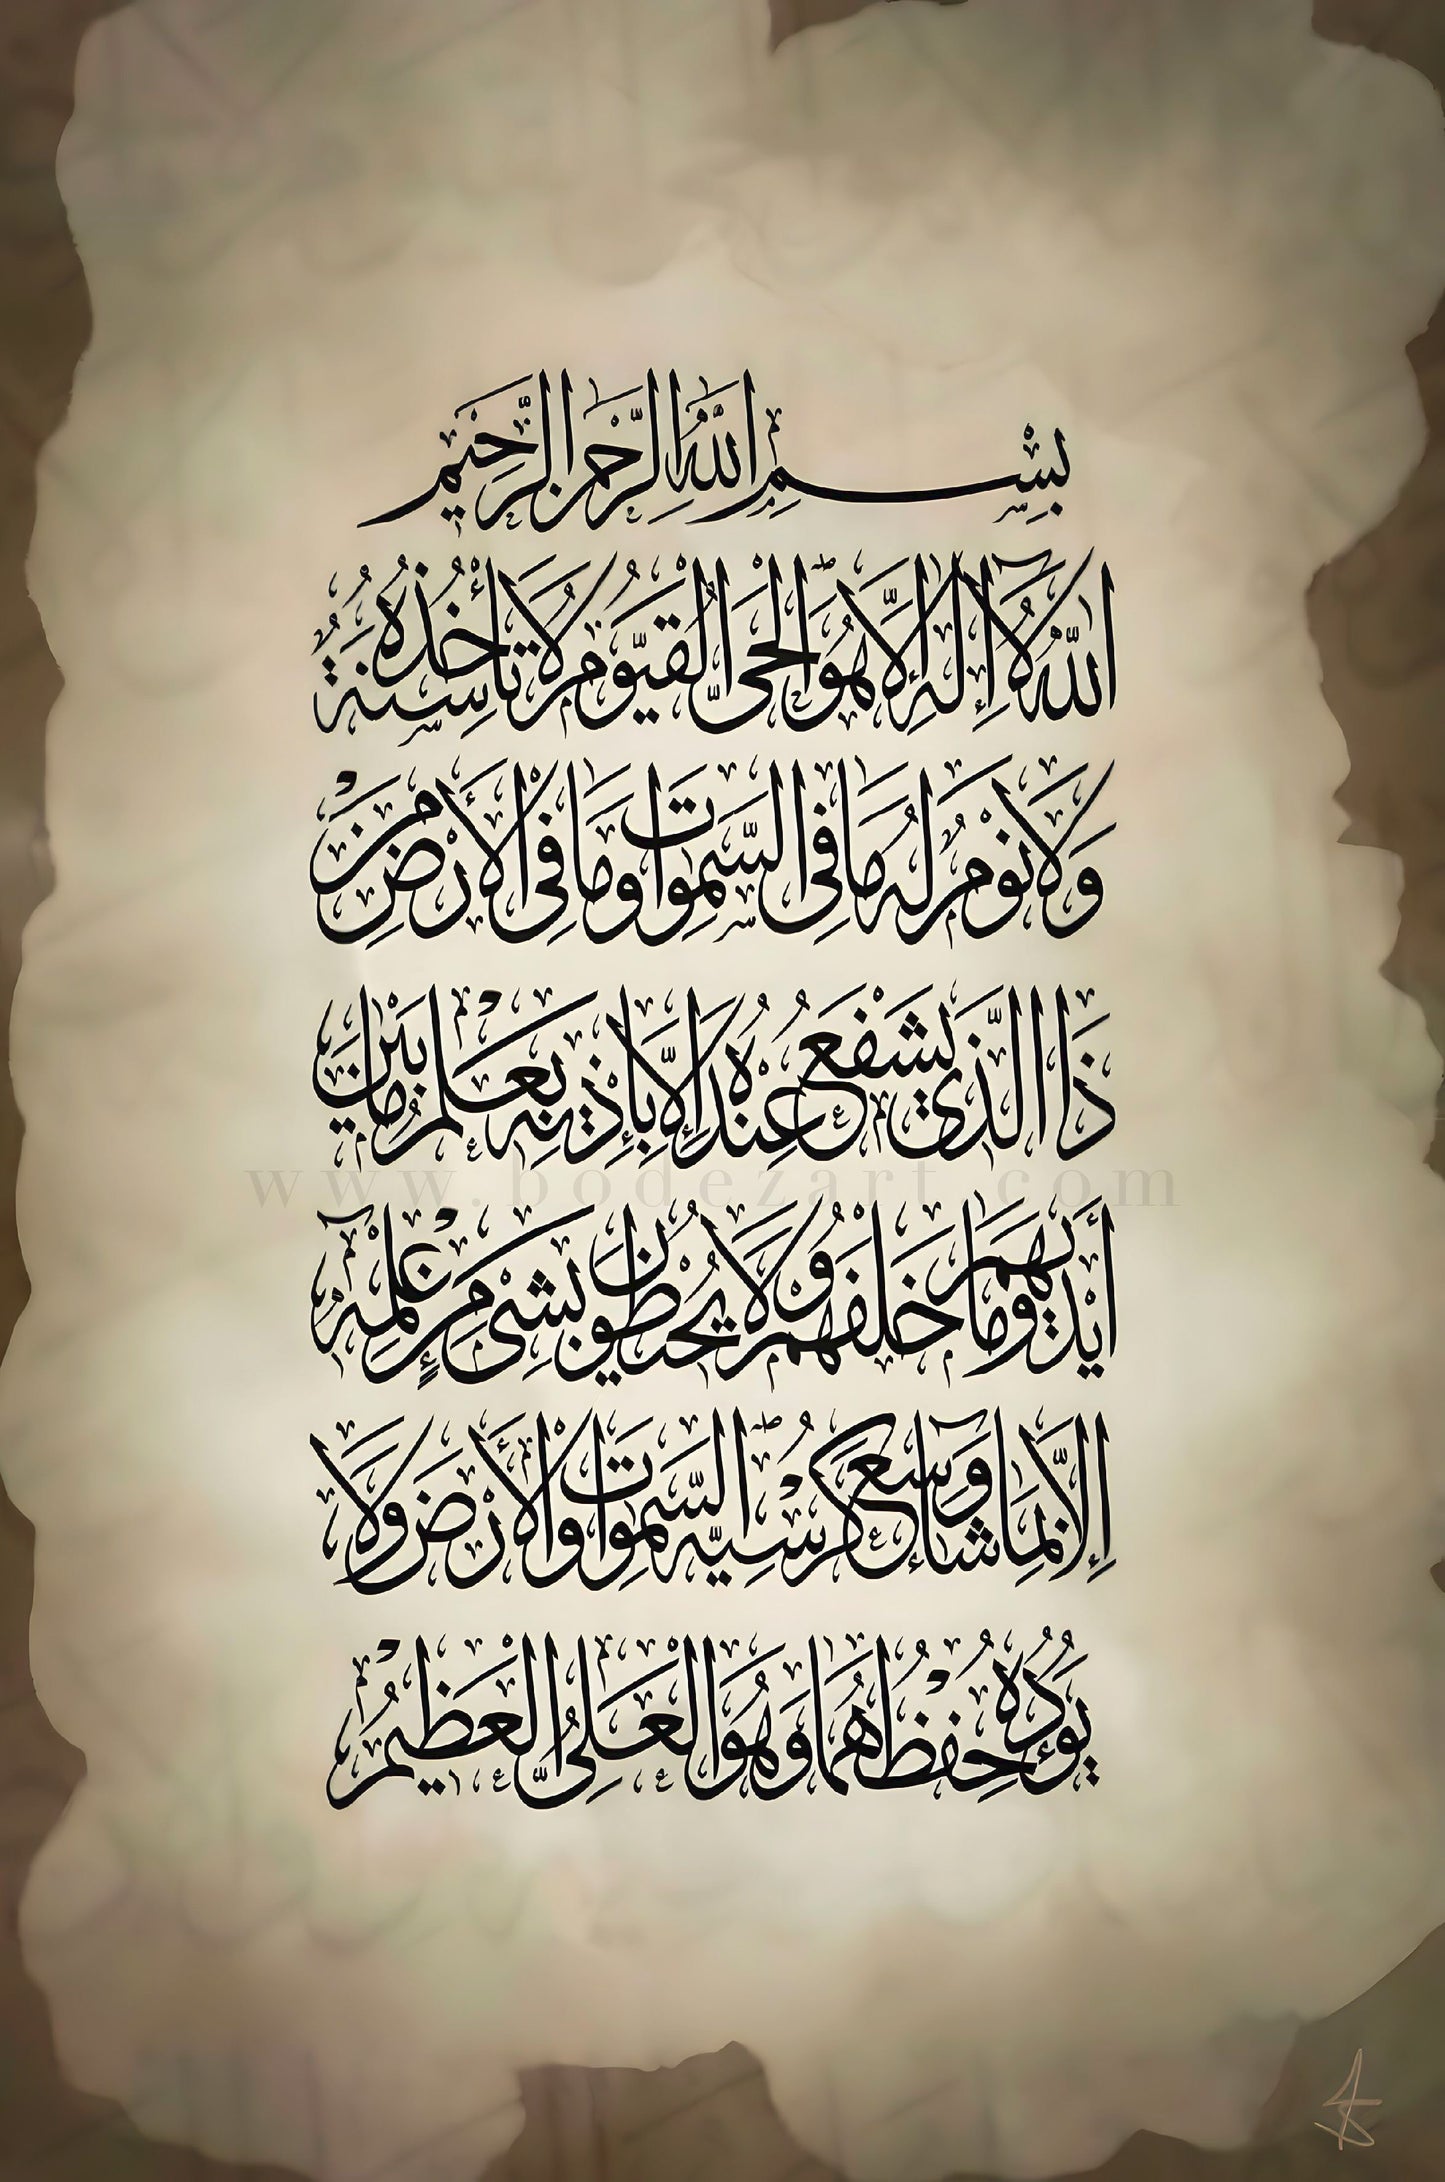 بِسْمِ اللَّهِ الرَّحْمَٰنِ الرَّحِيمِ
اللَّهُ لَا إِلَٰهَ إِلَّا هُوَ الْحَىُّ الْقَيُّومُ لَا تَأْخُذُهُ سِنَةٌ
وَلَا نَوْمٌ لَهُ مَا فِى السَّمٰوَاتِ وَمَا فِى الْأَرْضِ مَنْ
ذَا الَّذِي يَشْفَعُ عِنْدَهُ إِلَّا بِإِذْنِهِ يَعْلَمُ مَا بَيْنَ
أَيْدِيهِمْ وَمَا خَلْفَهُمْ وَلَا يُحِيطُونَ بِشَىْءٍ مِنْ عِلْمِهِ
إِلَّا بِمَا شَاءَ وَسِعَ كُرْسِيُّهُ السَّمٰوَاتِ وَالْأَرْضَ وَلَا
يَؤُدُهُ حِفْظُهُمَا وَهُوَ الْعَلِىُّ الْعَظِيمُ
www.bodezart.com